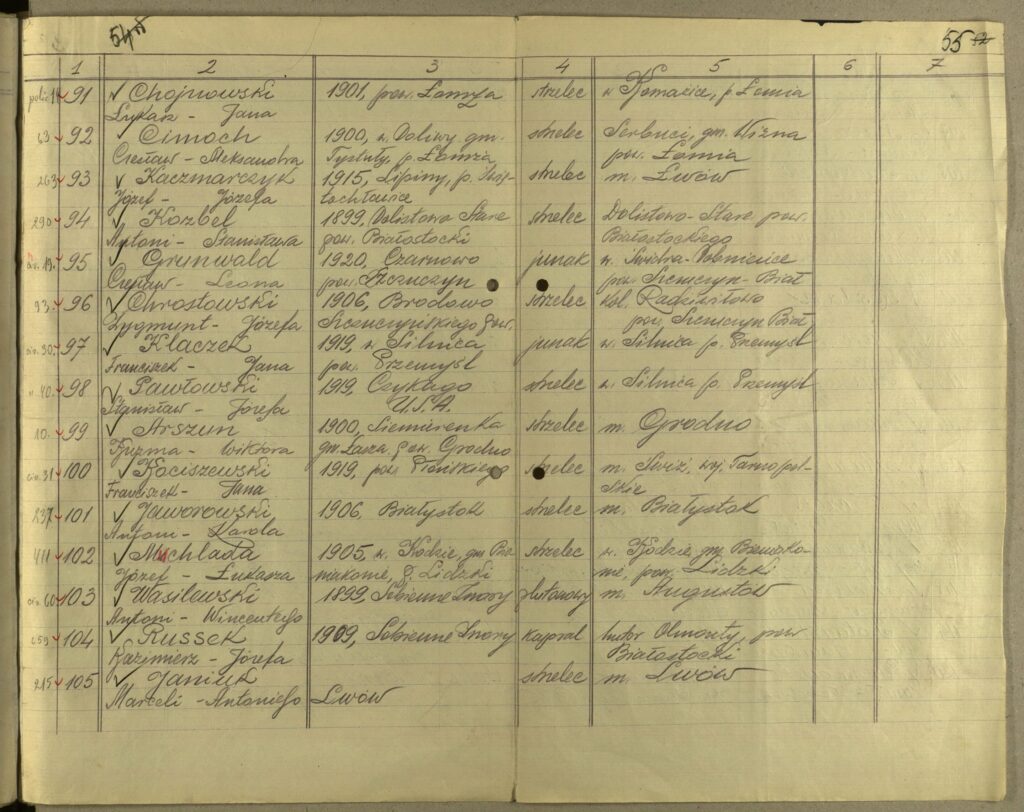 54
55
1 2 3 4 5 6 7
91 ✓ Chojnowski 1901, pow. Łomża strzelec p. Łomża
Łukasz - Jana
63 ✓ 92 Cimoch 1900, w. Doliwy gm. strzelec Serbuci, gm. Wizna
Czesław - Aleksandra p. Łomża pow. Łomża
263 ✓ 93 ✓ Kaczmarczyk 1915, Lipiny, p. Świę- strzelec m. Lwów
Józef - Józefa tochłowice
290 ✓ 94 ✓ Kozbel 1899, Dolistowo Stare strzelec Dolistowo-Stare pow.
Antoni - Stanisława pow. Białostocki Białostockiego
95 ✓ Grunwald 1920, Czarnowo junak w.
Czesław - Leona pow. Szczuczyn pow. Szczuczyn-Biał
93. ✓ 96 ✓ Chrostowski 1906, Brodowo strzelec kol. Radziwiłowo
Zygmunt - Józefa Szczuczyńskiego pow. pow. Szczuczyn Biał
97 ✓ Klaczek 1919, w. Silnica junak w. Silnica p. Przemyśl
Franciszek - Jana pow. Przemyśl
98 ✓ Pawłowski 1919, Czykago strzelec w. Silnica p. Przemyśl
Stanisław - Józefa U.S.A.
10. ✓ 99 ✓ Arszun 1900, Siemierenka strzelec m. Grodno
Kuzma - Wiktora gm. Łasza, pow. Grodno
100 ✓ Kociszewski 1919, pow. Płońskiego strzelec m. woj. Tarnopol-
Franciszek - Jana skie
237 ✓ 101 ✓ Jaworowski 1906, Białystok strzelec m. Białystok
Antoni - Karola
411 ✓ 102 ✓ Muchlada 1905, w. Kodzie, gm. strzelec w. Kodzie, gm.
Józef - Łukasza p. Lidzki pow. Lidzki
103 ✓ Wasilewski 1899, Sobienne plutonowy m. Augustów
Antoni - Wincentego
659 ✓ 104 ✓ Russek 1909, Sobienne kapral hutor Olmonty, pow
Kazimierz - Józefa Białostocki
215 ✓ 105 ✓ Janiuk strzelec m. Lwów
Marceli - Antoniego Lwów